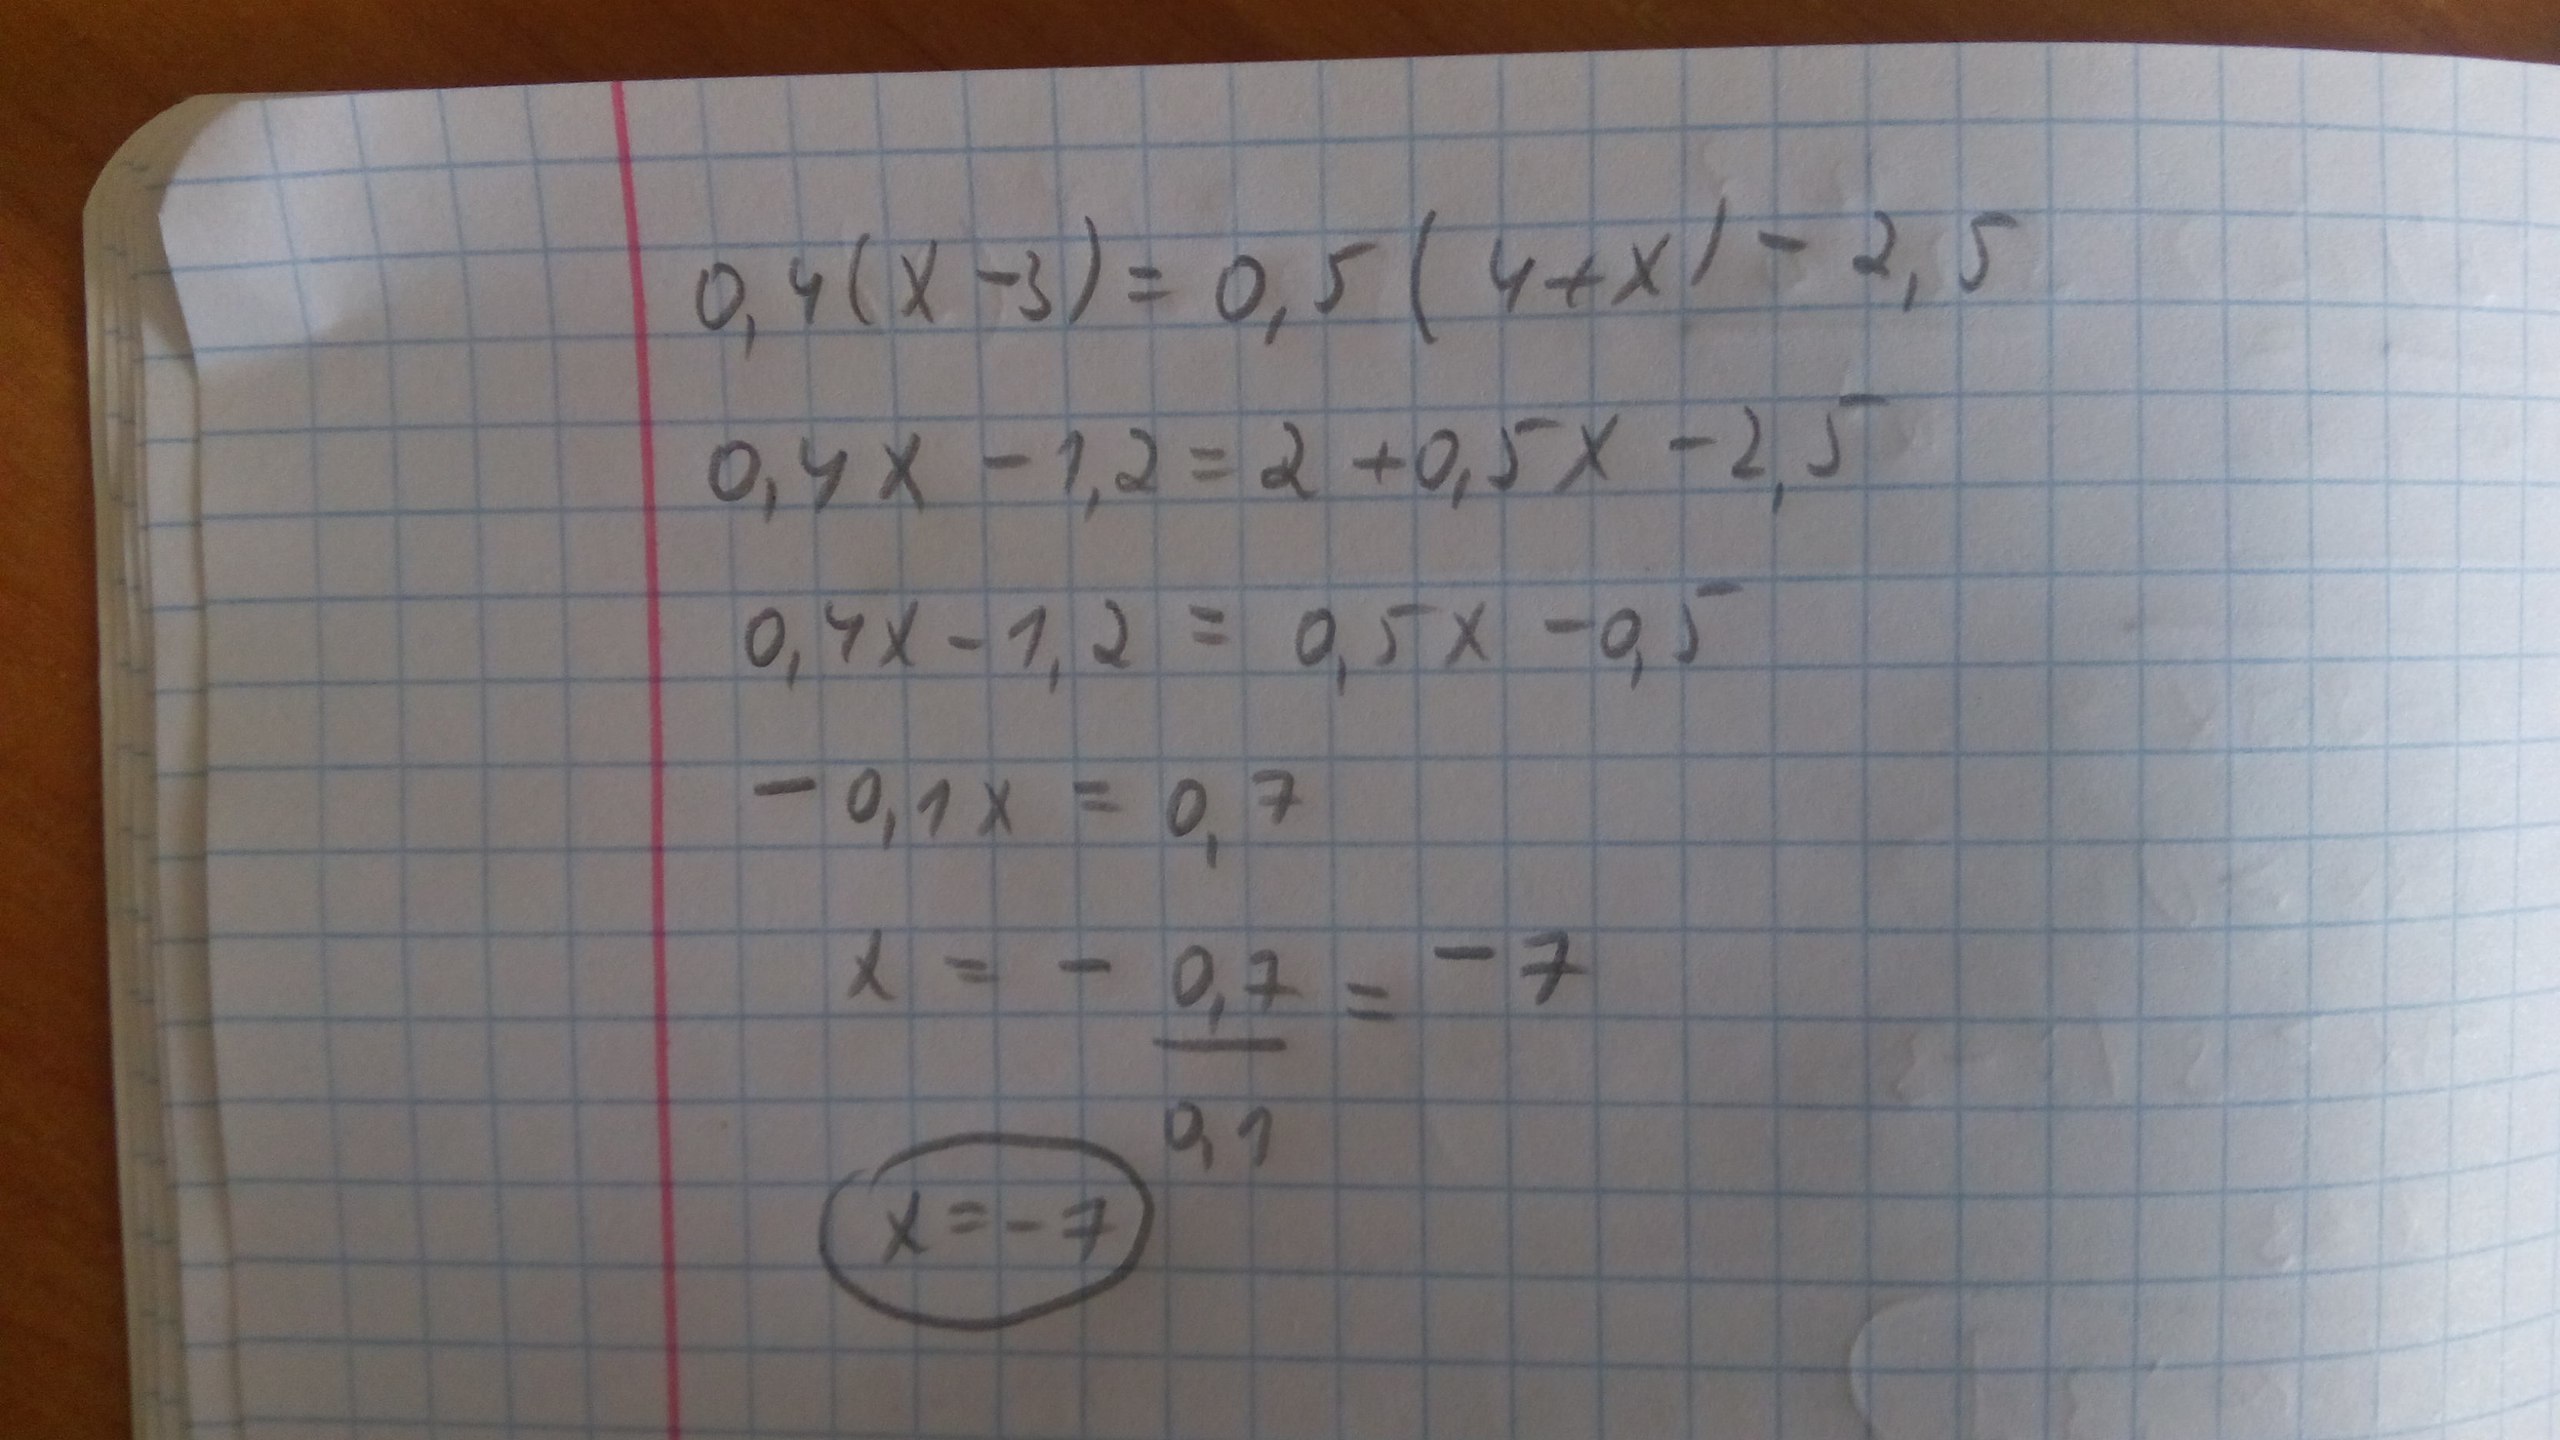 0,4(x-3)=0,5(4+x)-2,5
0,4x-1,2=2+0,5x-2,5
0,4x-1,2=0,5x-0,5
-0,1x=0,7
x=-0,7/0,1=-7
x=-7